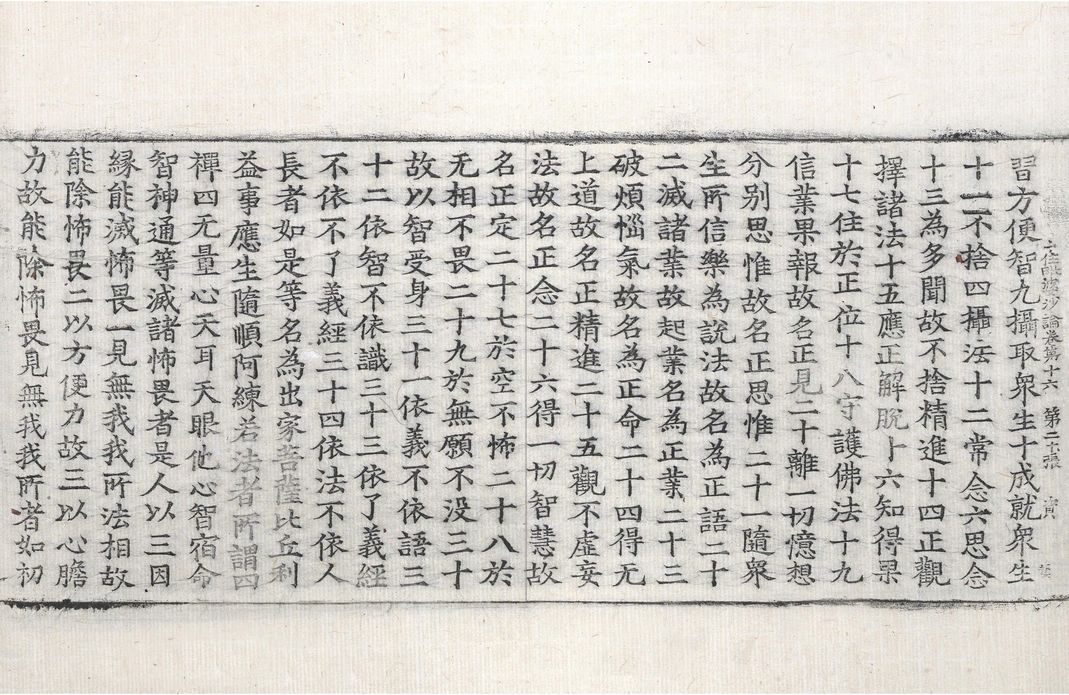 十住毗婆沙論卷第十六 第二十張 寅
習方便智九攝取衆生十成就衆生
十一不捨四攝法十二常念六思念
十三為多聞故不捨精進十四正觀
擇諸法十五應正解脫十六知得果
十七住於正位十八守護佛法十九
信業果報故名正見二十離一切憶想
分別思惟故名正思惟二十一隨衆
生所信樂為說法故名為正語二十
二滅諸業故起業名為正業二十三
破煩惱氣故名為正命二十四得无
上道故名正精進二十五觀不虛妄
法故名正念二十六得一切智慧故
名正定二十七於空不怖二十八於
无相不畏二十九於無願不没三十
故以智受身三十一依義不依語三
十二依智不依識三十三依了義經
不依不了義經三十四依法不依人
長者如是等名為出家菩薩比丘利
益事應生隨順阿練若法者所謂四
禪四无量心天耳天眼他心智宿命
智神通等滅諸怖畏者是人以三因
縁能滅怖畏一見無我我所法相故
能除怖畏二以方便力故三以心膽
力故能除怖畏見無我我所者如初